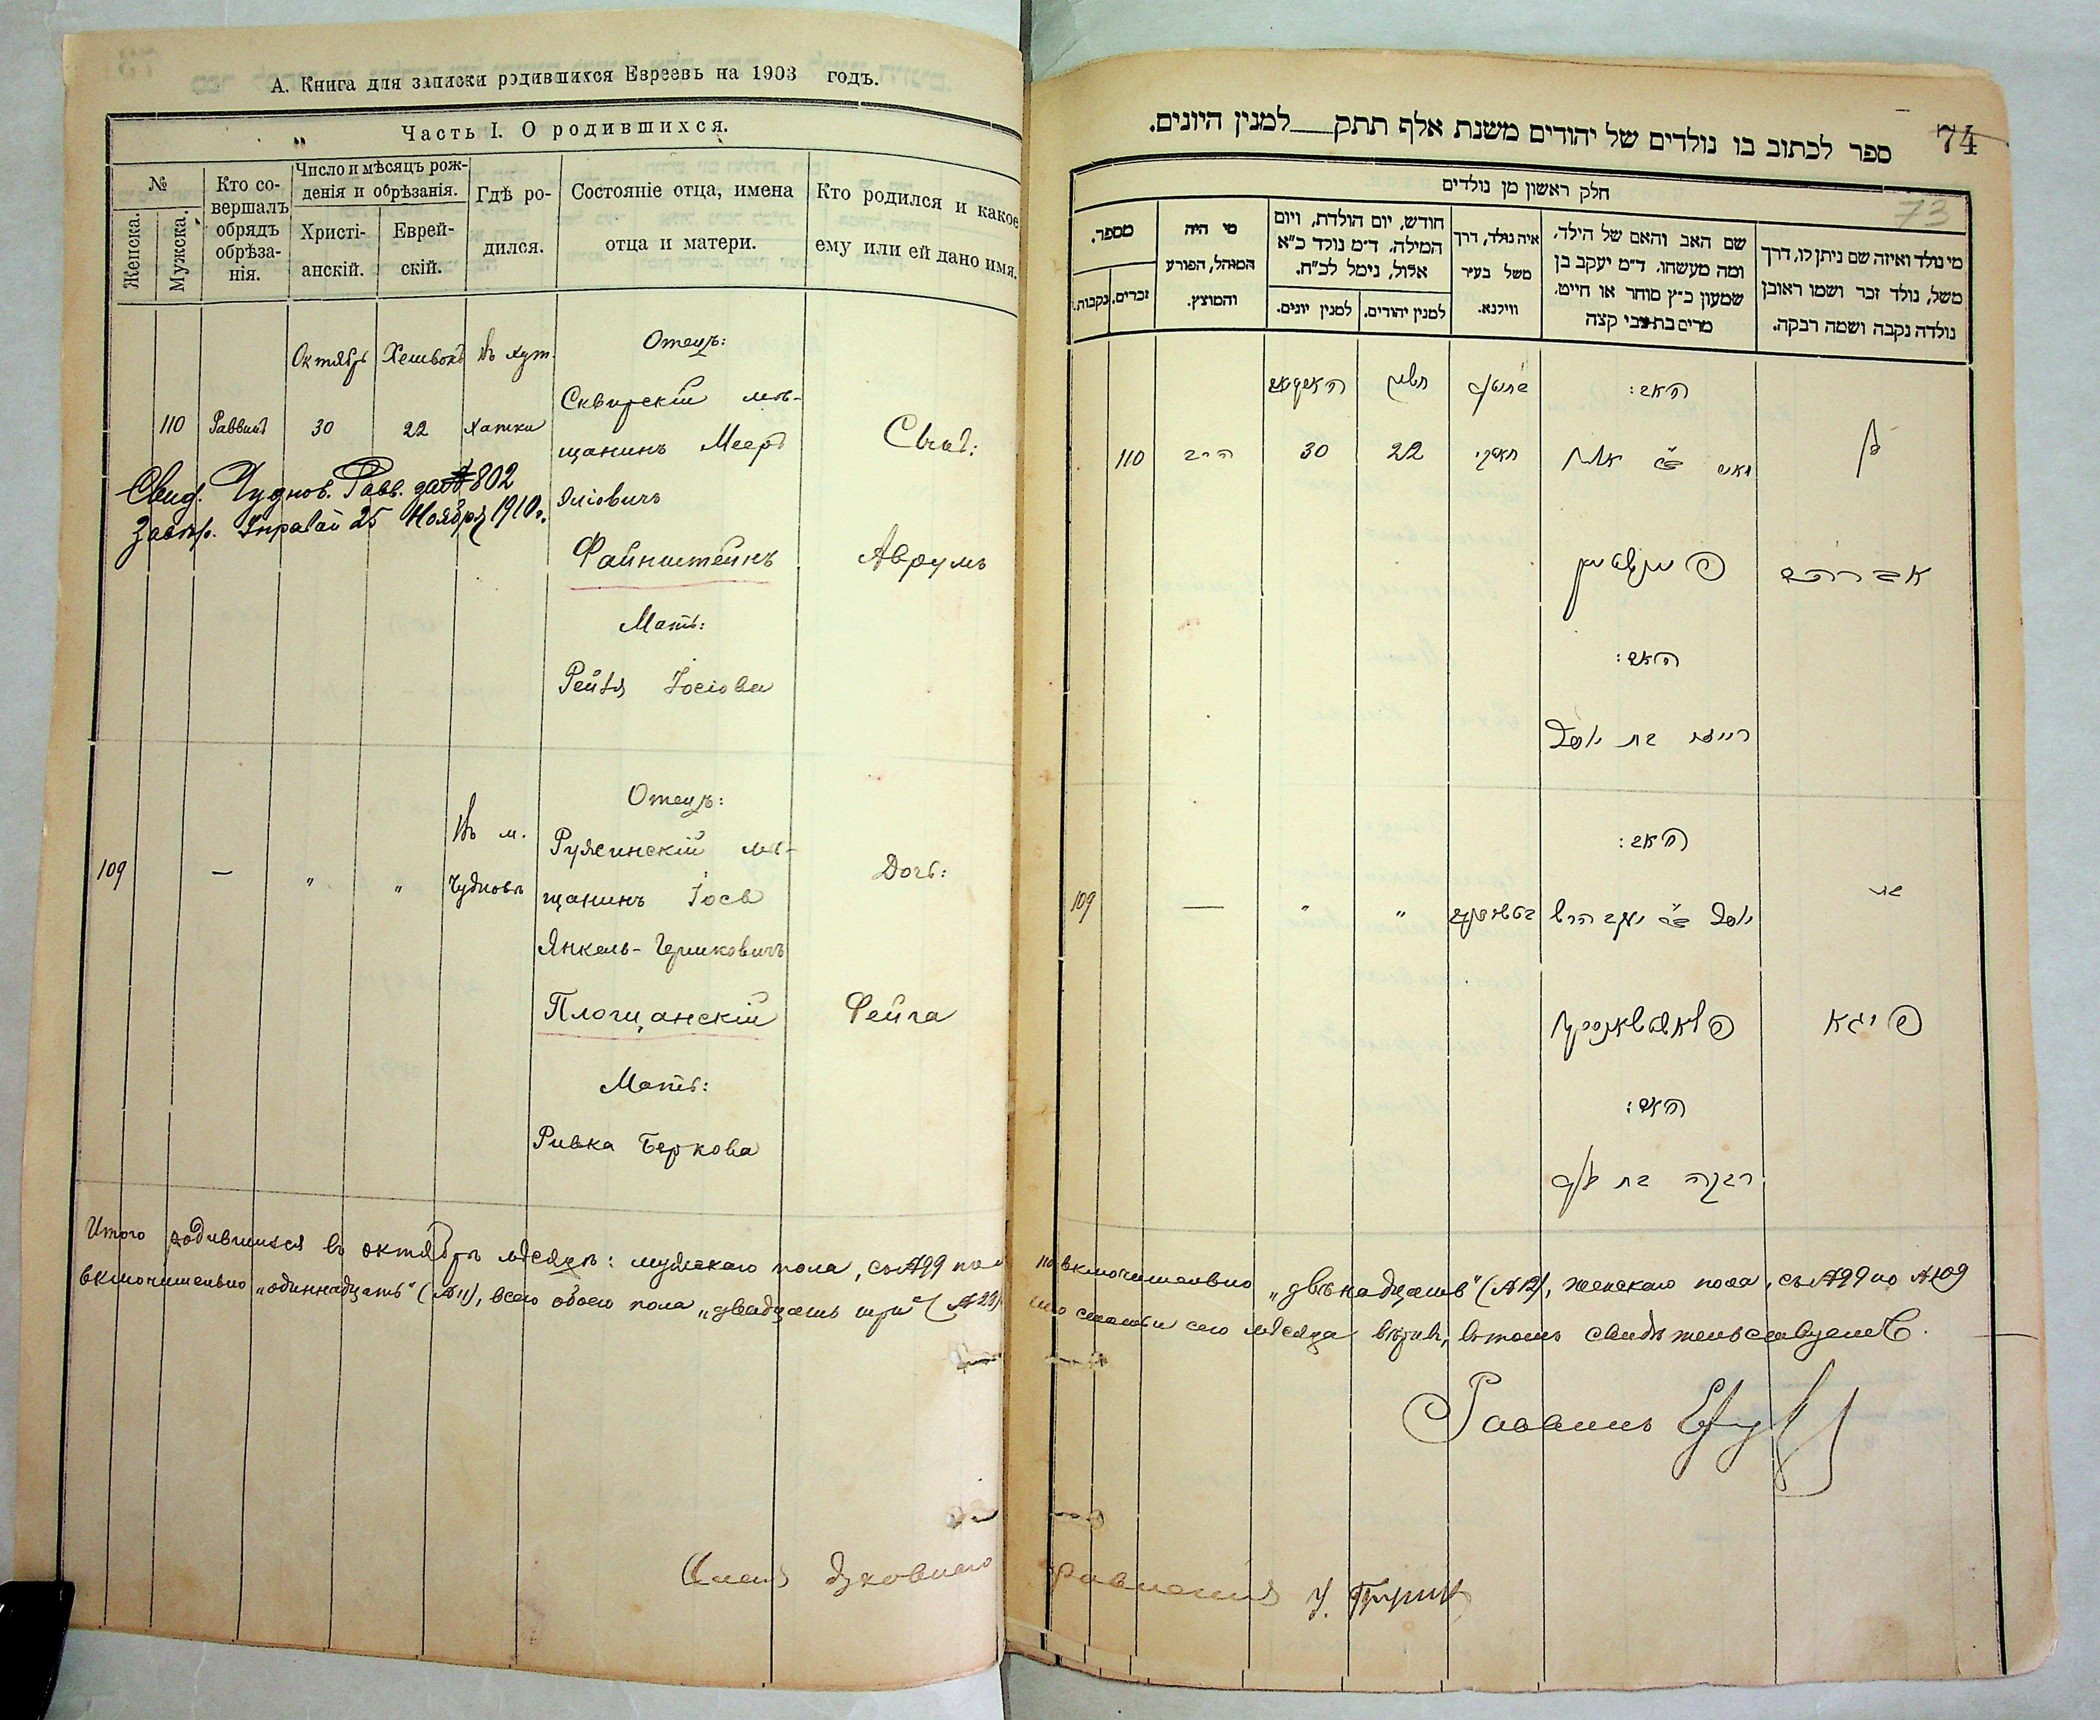 А. Книга для записки родившихся Евреевъ на 1903 годъ.
Часть I. О родившихся.
№
Женска.
Мужска.
Кто со-
вершалъ
обрядъ
обрѣза-
нія.
Число и мѣсяцъ рож-
денія и обрѣзанія.
Христі-
анскій.
Еврей-
скій.
Гдѣ ро-
дился.
Состояніе отца, имена
отца и матери.
Кто родился и какое
ему или ей дано имя.
Октябрь Хешвонъ Въ хут.
Отецъ:
110 Раввинъ 30 22 Хатки
Сквирскій мѣ-
щанинъ Мееръ
Сынъ:
Свид. Чуднов. Равв. за № 802
25 Ноября 1910 г.
Файнштейнъ
Аврумъ
Мать:
Рейзя Іосіова
Отецъ:
109 — " " Въ м.
Чудновъ
мѣ-
щанинъ Іось
Янкель-Гершковичъ
Дочь:
Площанскій
Фейга
Мать:
Ривка Беркова
Итого родившихся въ октябрѣ мѣсяцѣ: мужскаго пола, съ №99 по №
включительно „одиннадцать“ (№11), всего обоего пола „двадцать три“ (№23)
74
73
ספר לכתוב בו נולדים של יהודים משנת אלף תתק למנין היונים.
חלק ראשון מן נולדים
מי נולד ואיזה שם ניתן לו, דרך
משל, נולד זכר ושמו ראובן
נולדה נקבה ושמה רבקה.
שם האב והאם של הילד,
ומה מעשהו. ד״מ יעקב בן
שמעון כ״ץ סוחר או חייט.
מרים בת צבי קצה
איה נולד, דרך
משל בעיר
ווילנא.
חודש, יום הולדת, ויום
המילה. ד״מ נולד כ״א
אלול, נימל לכ״ח.
למנין יהודים.
למנין יונים.
מי היה
המוהל, הפורע
והמוצץ.
מספר.
זכרים.
נקבות.
האב:
חשון
בן
110 הרב 30 22 חאטקי
מאיר ב״ר
פיינשטיין
אברהם
האם:
רייזע בת יוסף
האב:
109 — " "
יוסף ב״ר יעקב הרש
בת
פייגא
האם:
רבקה בת
110 включительно „двѣнадцать“ (№12), женскаго пола, съ №99 по №109
что статьи сего мѣсяца вѣрны, въ томъ свидѣтельствуемъ.
Раввинъ
Членъ Духовнаго Правленія